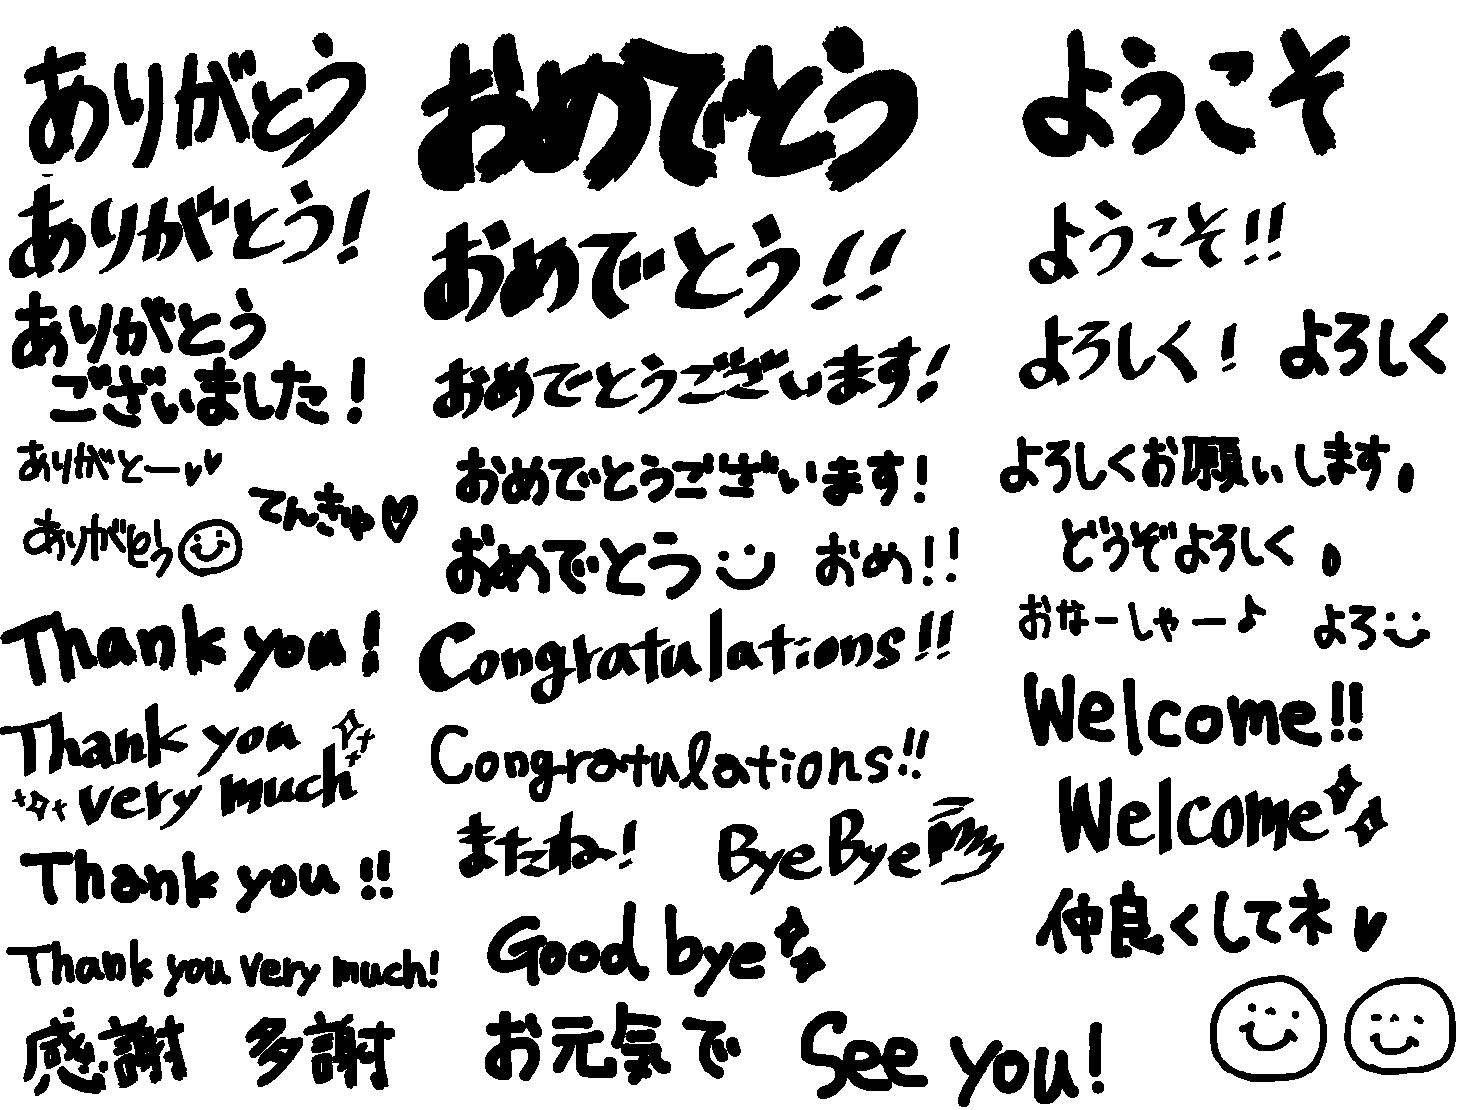 ありがとう
ありがとう!
ありがとう
ございました!
ありがとー♥♥
てんきゅ♡
ありがとう
Thank you!
Thank you
very much
Thank you!!
Thank you very much!
感謝 多謝
おめでとう
おめでとう!!
おめでとうございます!
おめでとうございます!
おめでとう おめ!!
Congratulations!!
Congratulations!!
またね! Bye Bye
Good bye
お元気で See you!
ようこそ
ようこそ!!
よろしく! よろしく
よろしくお願いします。
どうぞよろしく。
おなーしゃー♪ よろ
Welcome!!
Welcome
仲良くしてネ♥